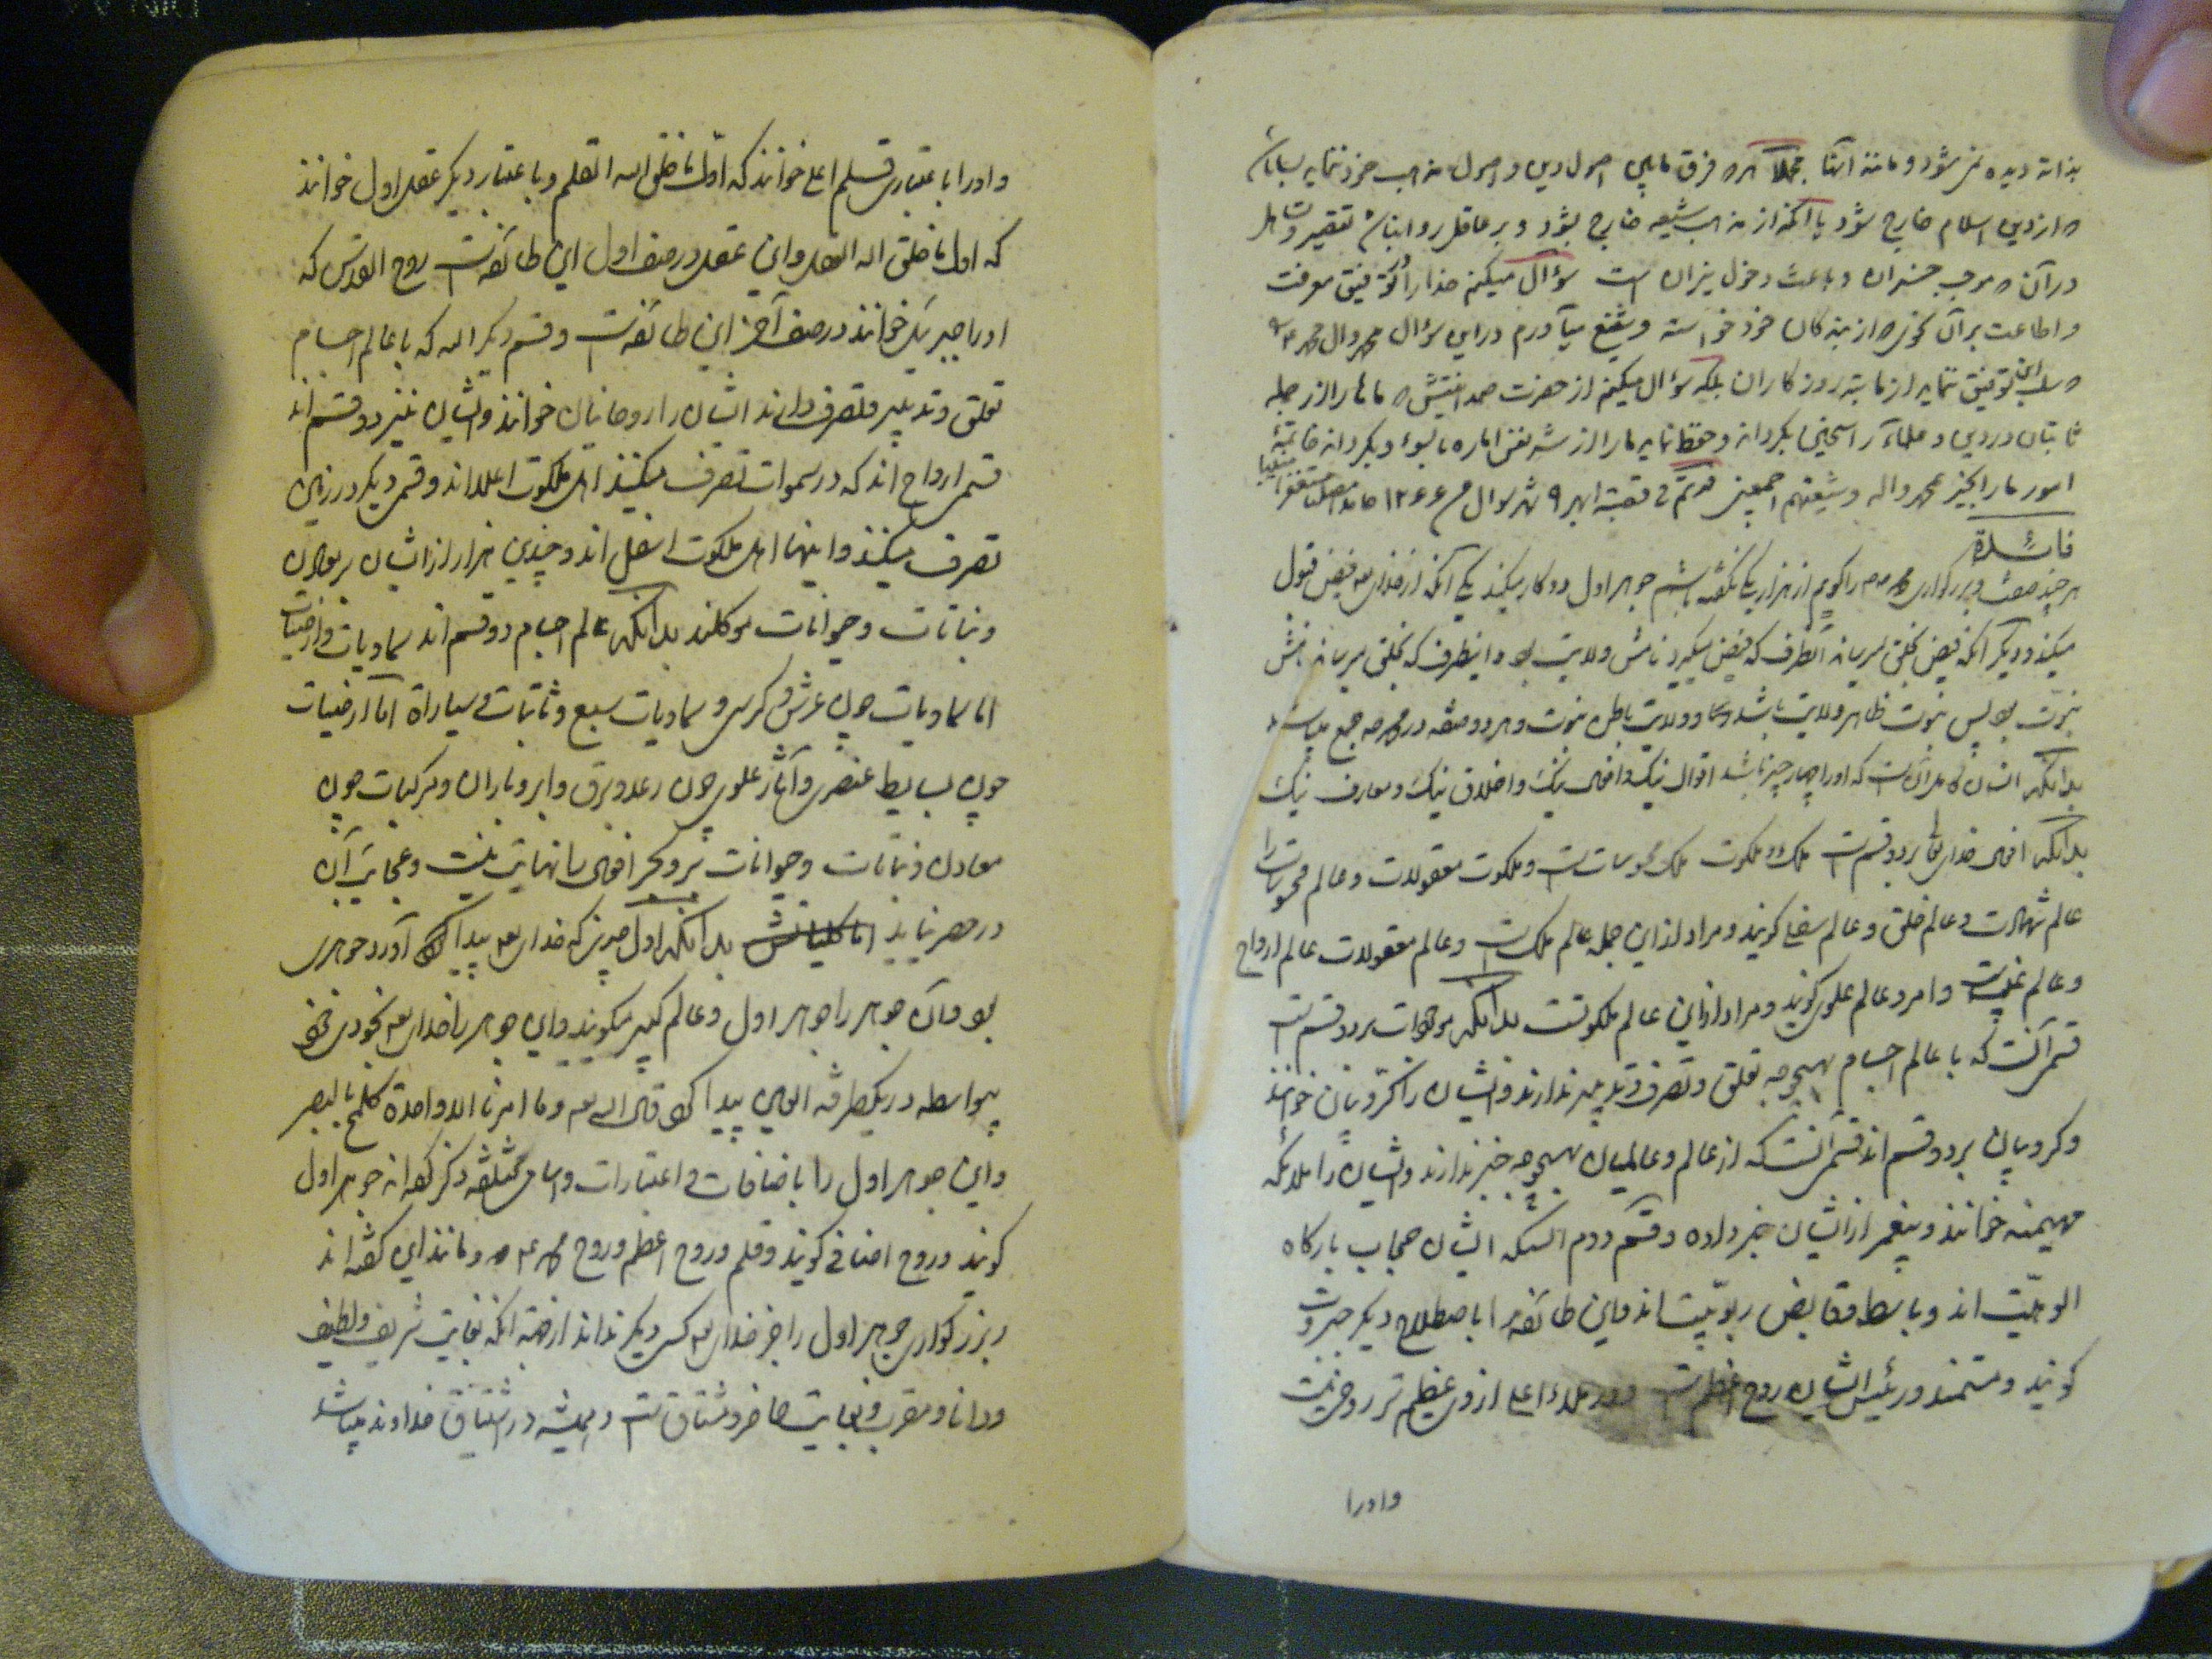 بذاته دیده نمی شود و مانند اینها مجملا هر که فرق مابین اصول دین و اصول مذهب خود ننماید بسا باشد
که از دین اسلام خارج شود یا آنکه از مذهب شیعه خارج بشود و بر عاقل روا نباشد تقصیر و تساهل
در آن که موجب خسران و باعث دخول نیران است سؤال میکنم خدا را که توفیق معرفت
و اطاعت بر آن نحوی که از بندگان خود خواسته و شفیع میآورم در این سؤال محمد وال محمد
که سلب این توفیق ننماید از ما بته روزکاران بلکه سؤال میکنم از حضرت صمدانیتش که ماها را از جمله
ثابتان در دین و علماء راسخین بگرداند و حفظ نماید مارا از شر نفس اماره بالسوء و بگرداند خاتمه
امور مارا بخیر بمحمد واله و شیعتهم اجمعین قد تم فی قصبة ابهر ۹ شهر شوال ۱۲۶۶ حامدا مصلیا مستغفرا
فائدة
هر چند صفت و بزرگواری محمد را گویم از هزار یکی نگفته باشم جوهر اول دو کار میکند یکی آنکه از خدای تعه فیض قبول
میکند و دیگر آنکه فیض بخلق میرساند آنطرف که فیض میگیرد نامش ولایت بود و اینطرف که بخلق میرساند نامش
نبوّت بود پس نبوت ظاهر ولایت باشد و ولایت باطن نبوت و هر دو صفه در محمد جمع میباشد
بدانکه انسان کامل آنست که او را چهار چیز باشد اقوال نیک و افعال نیک و اخلاق نیک و معارف نیک
بدانکه افعال خدای تعا بر دو قسم است ملک و ملکوت ملک محسوسات است و ملکوت معقولات و عالم محسوسات را
عالم شهادت و عالم خلق و عالم سفلی گویند و مراد از این جمله عالم ملک است و عالم معقولات عالم ارواح
و عالم غیب و امر و عالم علوی گویند و مراد از این عالم ملکوتست بدانکه موجودات بر دو قسم است
قسمی آنست که با عالم اجسام بهیچوجه تعلق و تصرف و تدبیر ندارند و ایشان را کرّوبیان خوانند
و کروبیان بر دو قسم اند قسمی آنست که از عالم و عالمیان بهیچوجه خبر ندارند و ایشان را ملائکه
مهیمنه خوانند و پیغمبر از ایشان خبر داده و قسم دوم آنستکه ایشان حجاب بارکاه
الوهیّت اند و باسط و قابض ربوبیّت اند و این طائفه را باصطلاح دیگر جبروت
گویند و رئیس ایشان روح اعظم است و در ملاء اعلی از وی عظیم تر روحی نیست
و اورا
و اورا باعتباری قلم اعلی خوانند که اوّل ما خلق الله القلم و باعتبار دیگر عقل اول خوانند
که اول ما خلق الله العقل و این عقل در صف اول این طائفه است روح القدس که
اورا جبرئیل خوانند در صف آخر این طائفه است و قسم دیگر آنند که با عالم اجسام
تعلق و تدبیر و تصرف دارند ایشان را روحانیان خوانند و ایشان نیز دو قسم اند
قسمی ارواح اند که در سموات تصرف میکنند اهل ملکوت اعلا اند و قسمی دیگر در زمین
تصرف میکنند و اینها اهل ملکوت اسفل اند و چندین هزار از ایشان بر معادن
و نباتات و حیوانات موکلند بدانکه عالم اجسام دو قسم اند سماویات و ارضیات
اما سماویات چون عرش و کرسی و سماویات سبع و ثابتات و سیاراة اما ارضیات
چون بسایط عنصری و آثار علوی چون رعد و برق و ابر و باران و مرکبات چون
معادن و نباتات و حیوانات بر و بحر افعال را نهایت نیست و عجایب آن
در حصر نیاید اما کلیاتش بدانکه اول چیزی که خدای تعه پیدا آورد جوهری
بود و آن جوهر را جوهر اول و عالم کبیر میگویند و این جوهر را خدای تعه بخودی خود
بیواسطه در یکطرفة العین پیدا کرد قال الله تعه و ما امرنا الا واحدة کلمح بالبصر
و این جوهر اول را باضافات و اعتبارات و اسامی مختلفه ذکر کرده اند جوهر اول
گویند و روح اضافی گویند و قلم و روح اعظم و روح محمد و مانند این گفته اند
بزرگواری جوهر اول را جز خدای تعه کسی دیگر نداند از جهة آنکه بغایت شریف و لطیف
و دانا و مقرب و بغایت حاضر و مشتاق است و همیشه در اشتیاق خداوند میباشد